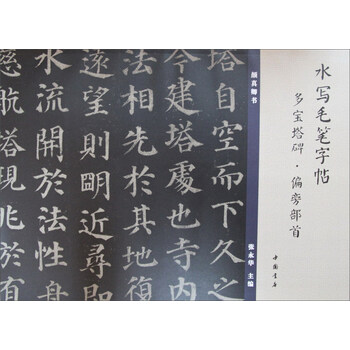 水写毛笔字帖
多宝塔碑·偏旁部首
中国书店
颜真卿书
张永华 主编
塔自空而下久之
今建塔處也寺内
法相先於其地復
遠望則眀近尋即
水流開於法性舟
慈航塔現兆於有